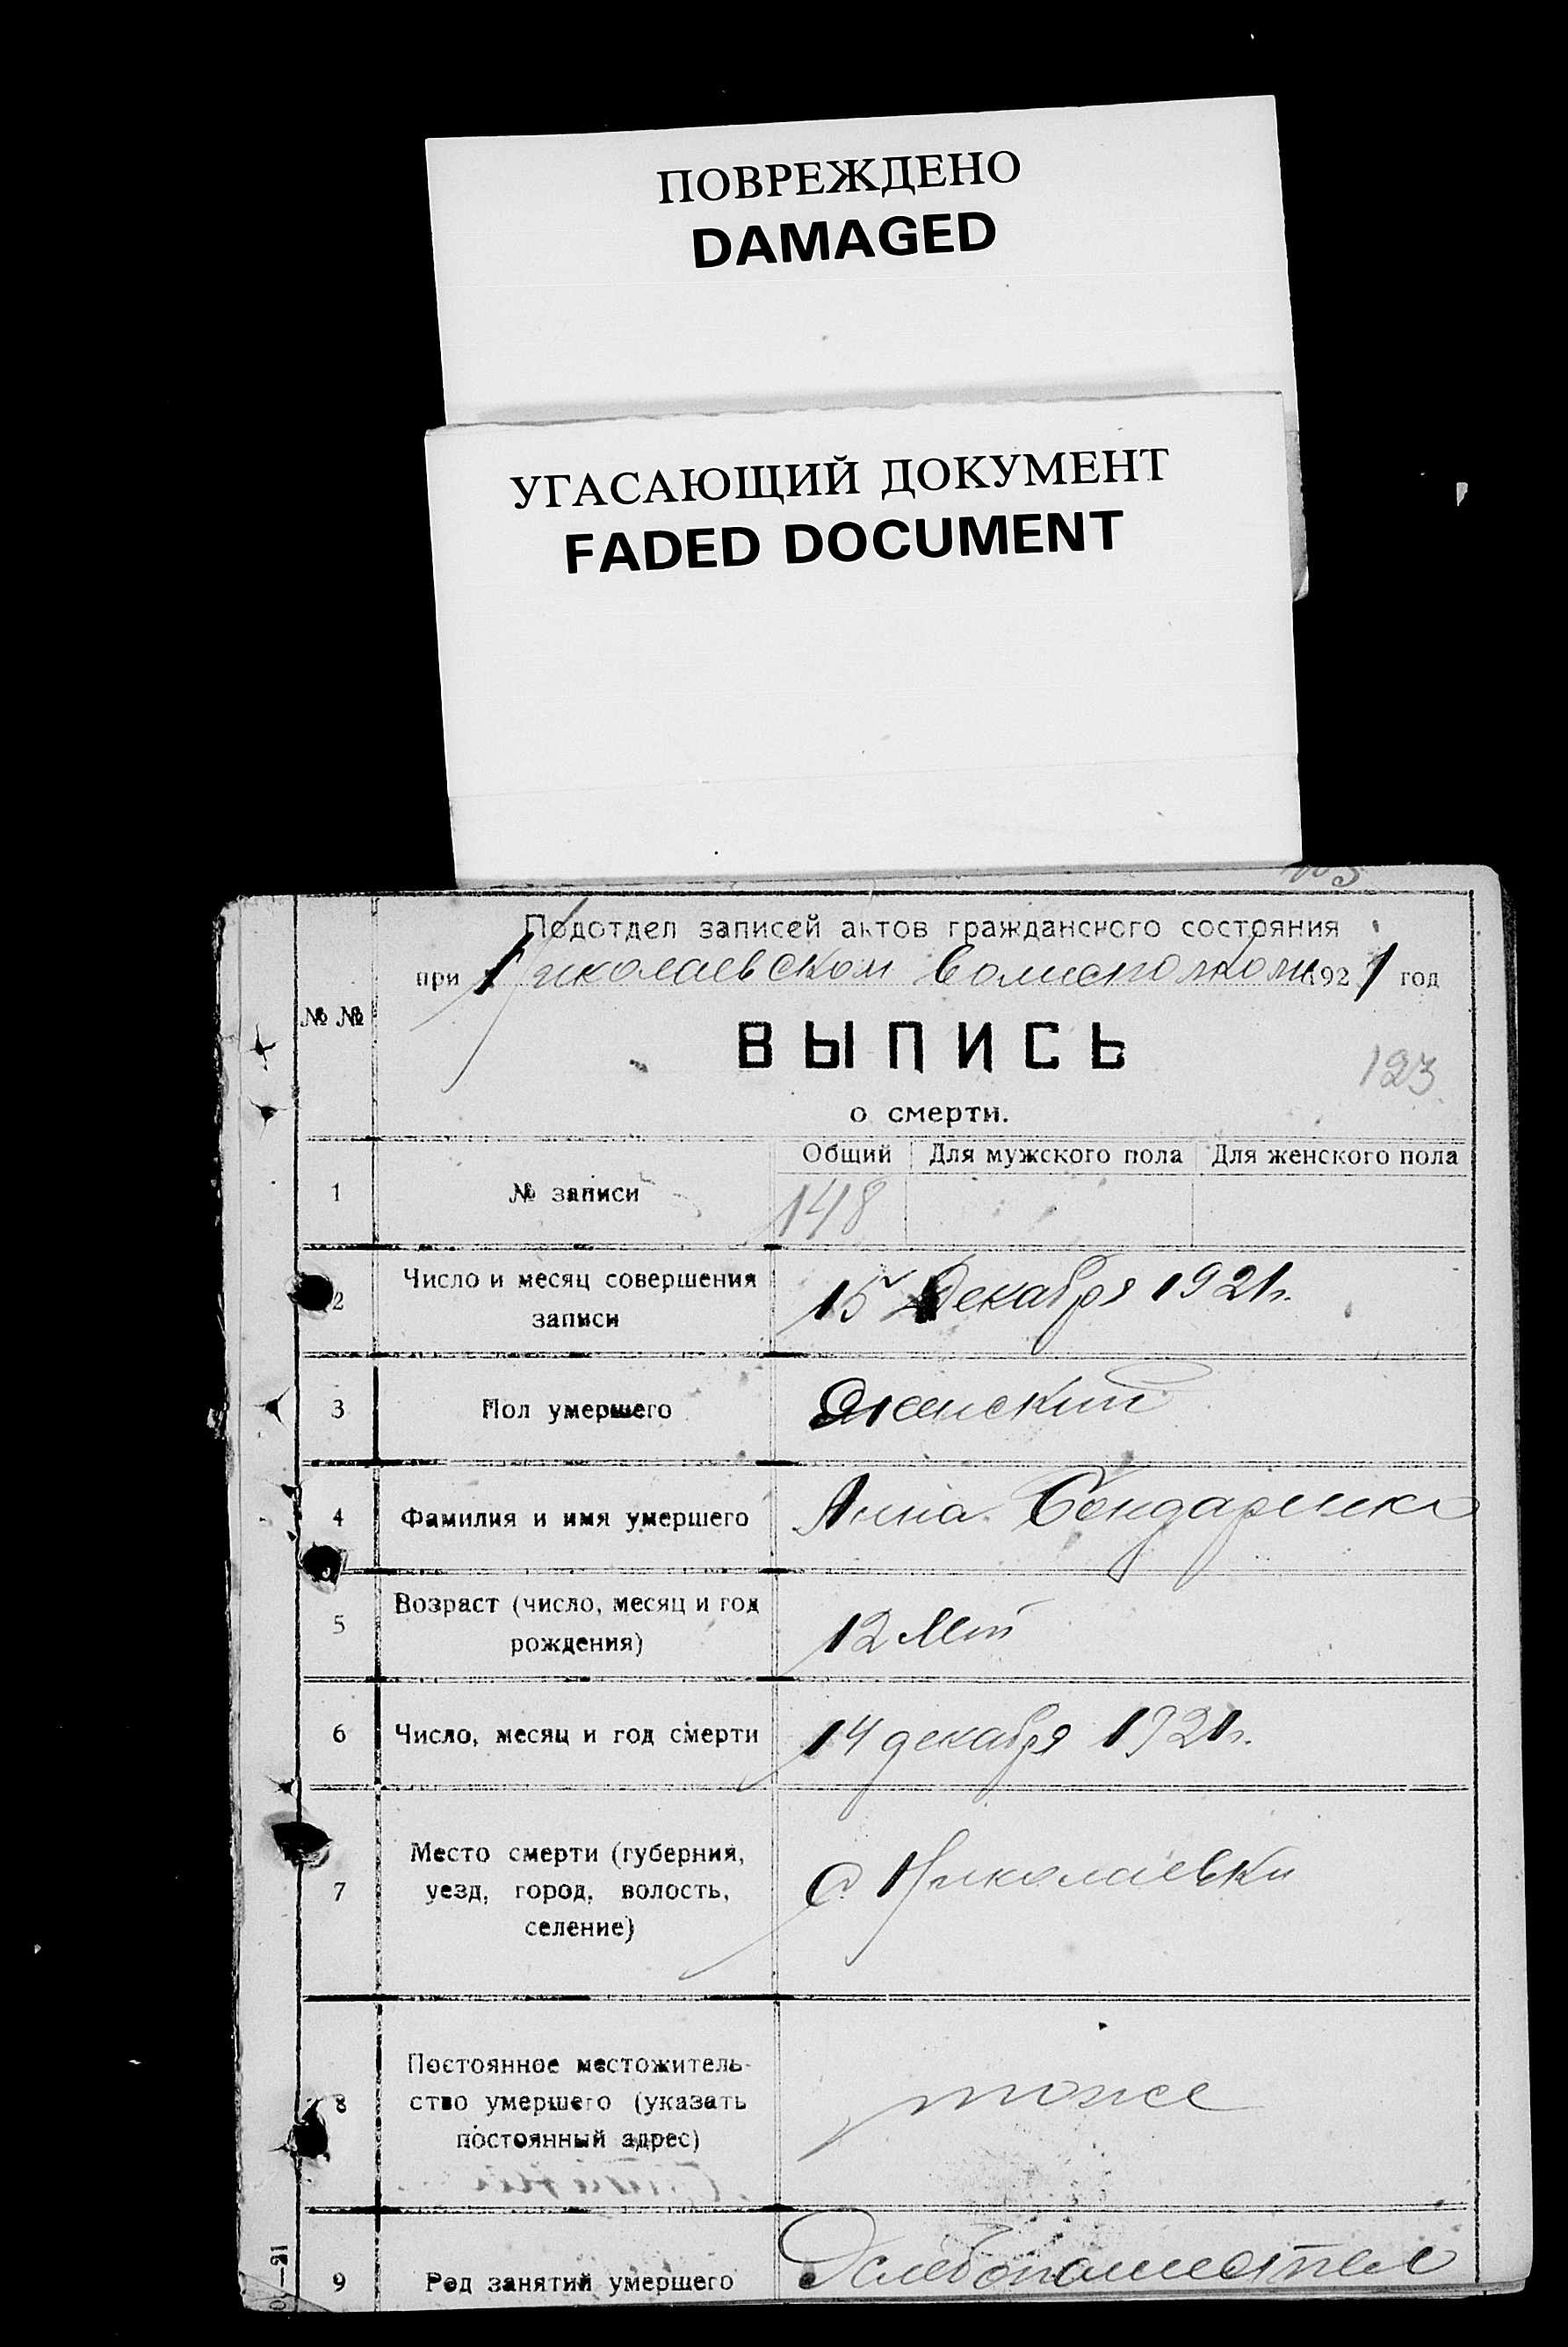 ПОВРЕЖДЕНО
DAMAGED
УГАСАЮЩИЙ ДОКУМЕНТ
FADED DOCUMENT
Подотдел записей актов гражданского состояния
при Николаевском волисполком 1921 год
№ №
ВЫПИСЬ
123
о смерти.
Общий Для мужского пола Для женского пола
1 № записи 148
2 Число и месяц совершения
записи
15 Декабря 1921 г.
3 Пол умершего Женский
4 Фамилия и имя умершего Анна Бондаренко
5 Возраст (число, месяц и год
рождения)
12 лет
6 Число, месяц и год смерти 14 декабря 1921 г.
Место смерти (губерния,
7 уезд, город, волость, С Николаевки
селение)
Постоянное местожитель-
8 ство умершего (указать тоже
постоянный адрес)
9 Род занятий умершего Хлебопашество